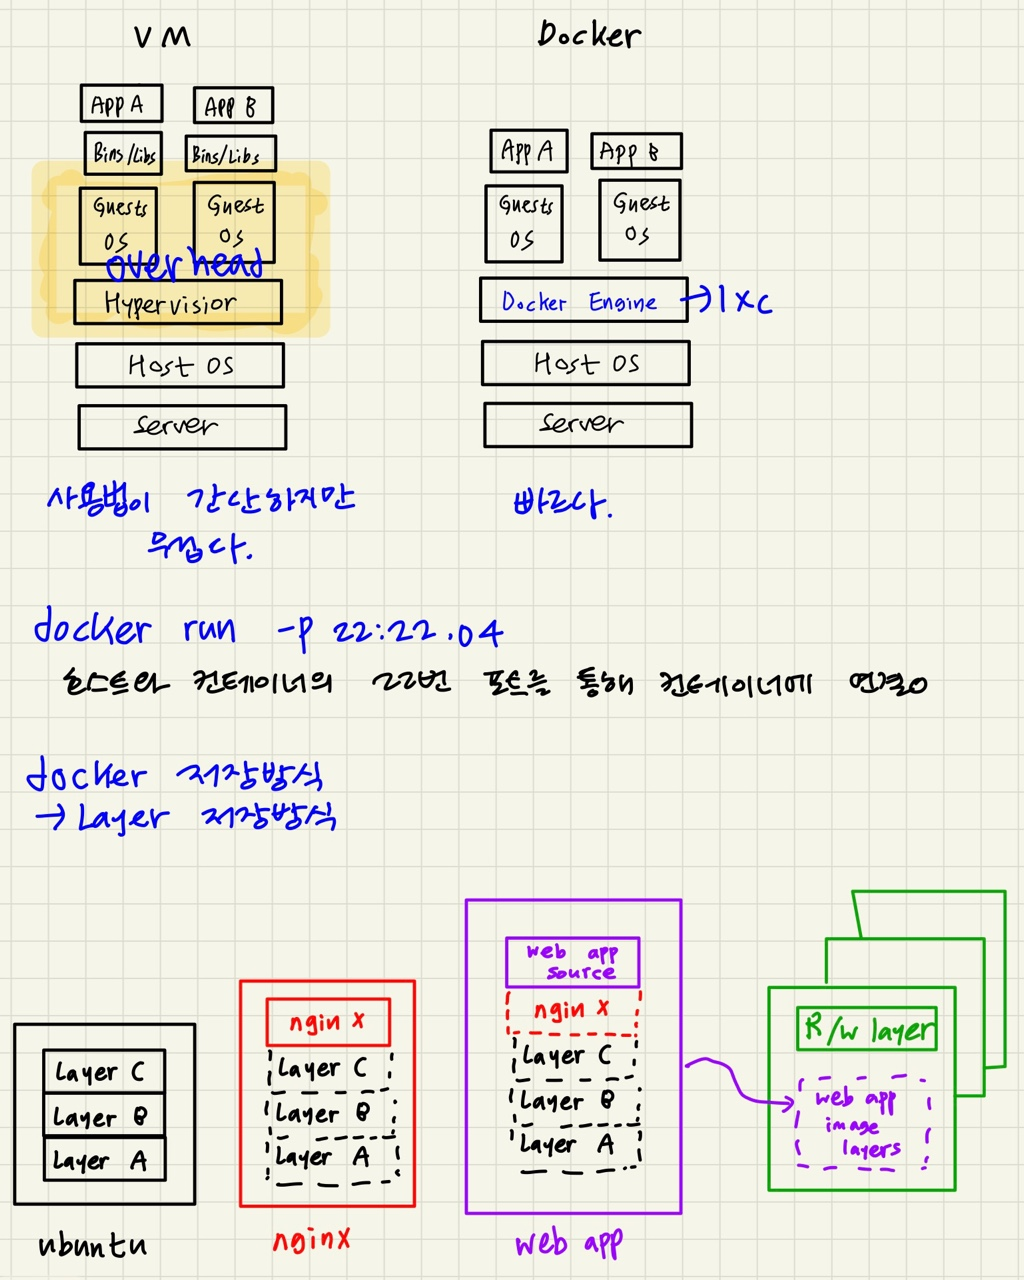 VM
Docker
App A
App B
Bins/Libs
Bins/Libs
Guests
OS
Guest
OS
overhead
Hypervisior
Host OS
Server
App A
App B
Guests
OS
Guest
OS
Docker Engine → lxc
Host OS
Server
사용법이 간단하지만
무겁다.
빠르다.
docker run -p 22:22.04
호스트와 컨테이너의 22번 포트를 통해 컨테이너에 연결o
docker 저장방식
→ Layer 저장방식
Layer C
Layer B
Layer A
ubuntu
nginx
Layer C
Layer B
Layer A
nginx
web app
source
nginx
Layer C
Layer B
Layer A
web app
R/w layer
web app
image
layers